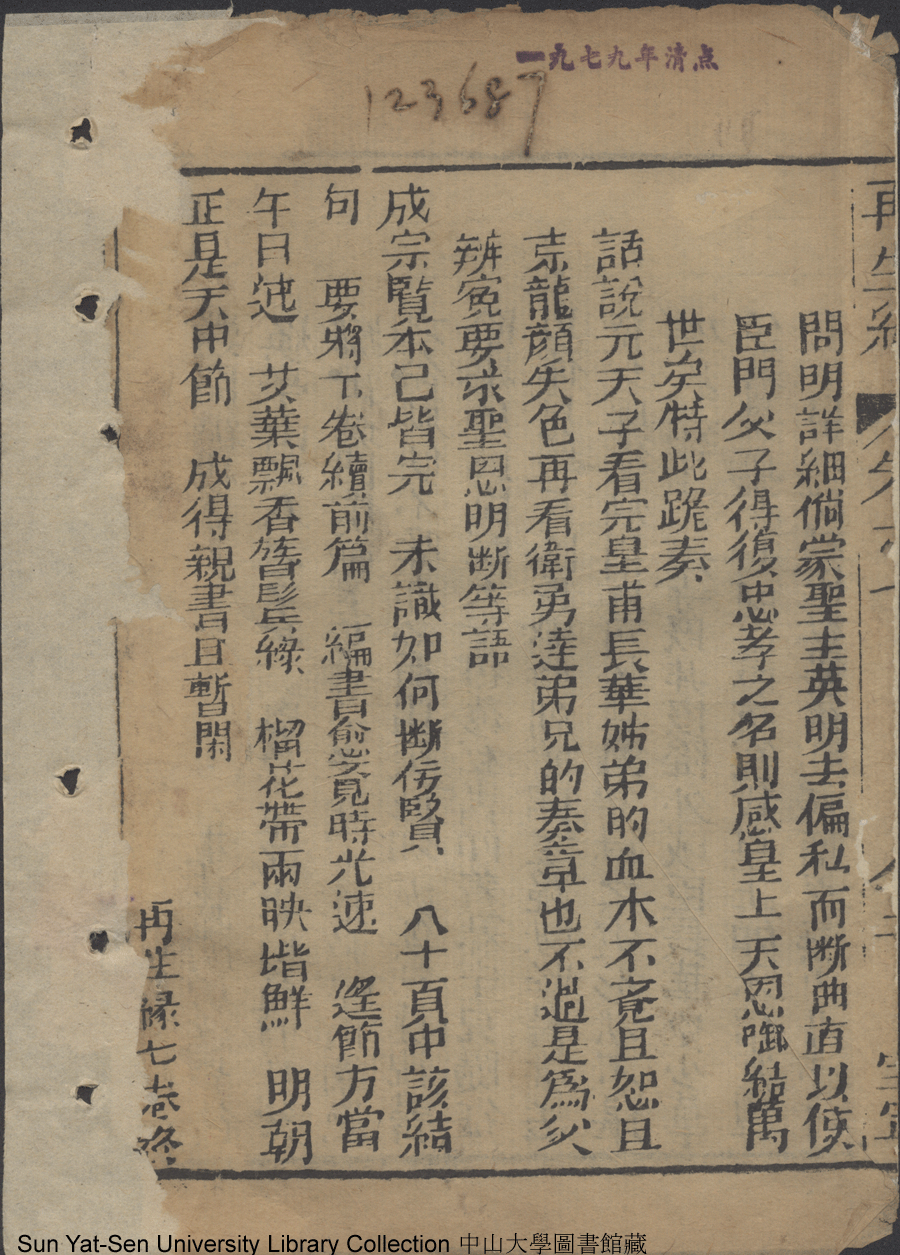 一九七九年清点
123687
再生
問明詳細倘蒙聖主英明去偏私而断曲直以使
臣門父子得復忠孝之名則感皇上天恩啣結萬
世矣特此跪奏
話說元天子看完皇甫長華姊弟的血本不竟且恕且
京龍顔失色再看衛勇達弟兄的奏章也不過是為父
辨寃要求聖恩明断等語
成宗覽本己皆完 未識如何断佞賢 八十頁中該結
句 要將下卷續前篇 編書愈覓時光速 逢節方當
午日延 艾葉飄香皆髩綠 榴花帶雨映堦鮮 明朝
正是天中節 成得親書且暫閑
再生緣七卷終
Sun Yat-Sen University Library Collection 中山大學圖書館藏